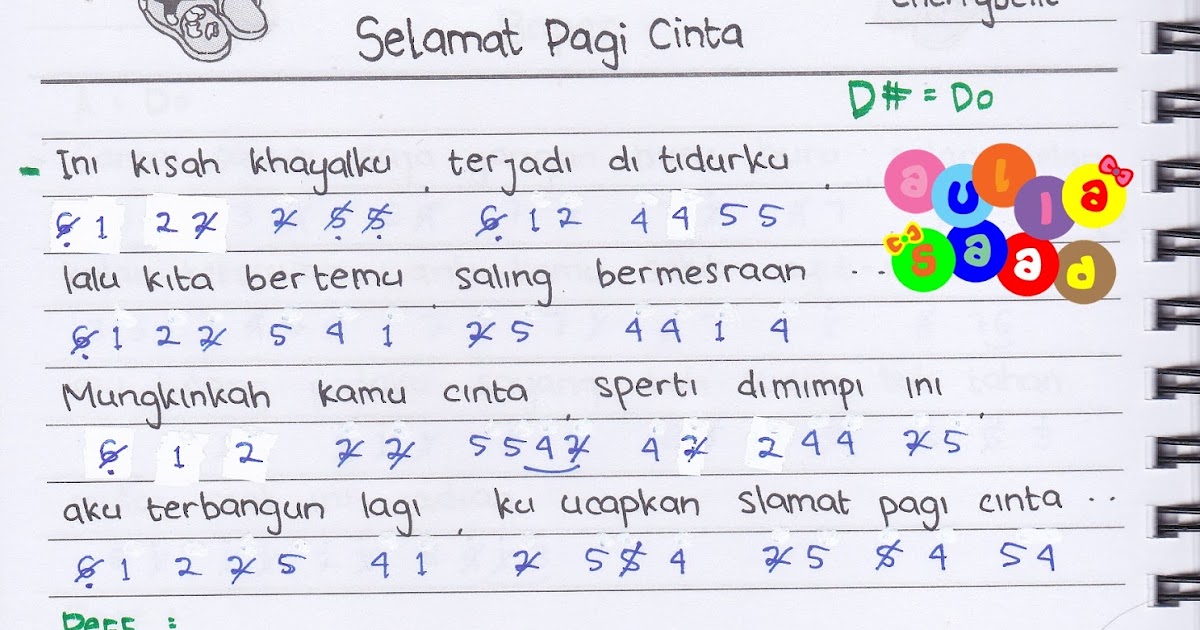 cherrybelle
Selamat Pagi Cinta
D# = Do
- Ini kisah khayalku, terjadi di tidurku,
6 1 2 2 2 5 5 6 1 2 4 4 5 5
aulla
saad
lalu kita bertemu, saling bermesraan ..
6 1 2 2 5 4 1 2 5 4 4 1 4
Mungkinkah kamu cinta, sperti dimimpi ini,
6 1 2 2 2 5 5 4 2 4 2 2 4 4 2 5
aku terbangun lagi, ku ucapkan slamat pagi cinta ..
6 1 2 2 5 4 1 2 5 5 4 2 5 5 4 5 4